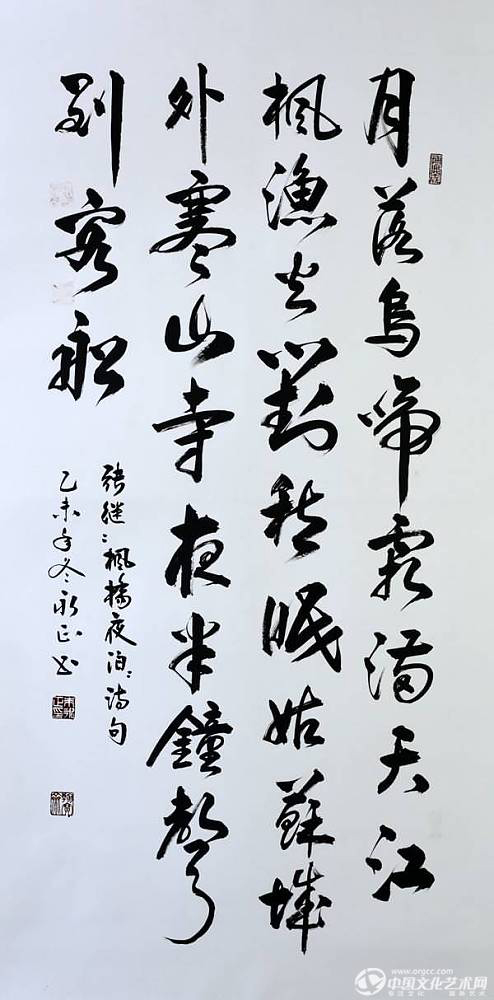 月落烏啼霜滿天江
楓漁火對愁眠姑蘇城
外寒山寺夜半鐘聲
到客船
张继:枫橋夜泊:诗句
乙未年冬永正书
中国文化艺术网
www.orgcc.com